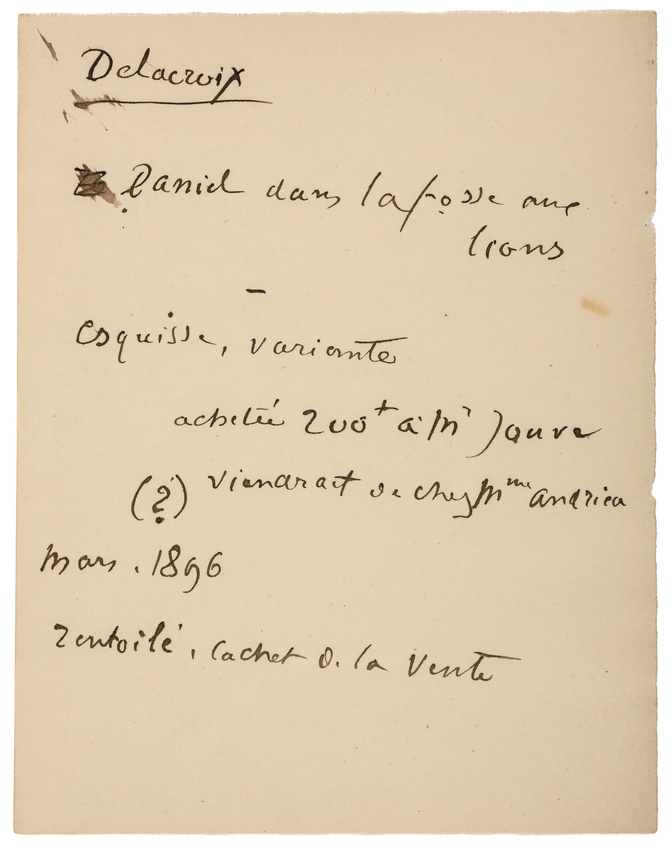 Delacroix
Daniel dans la fosse aux
lions
–
esquisse, variante
achetée 200+ à Mr Jouve
(?) viendrait de chez Mme Andrieu
Mars. 1896
rentoilé, cachet de la vente